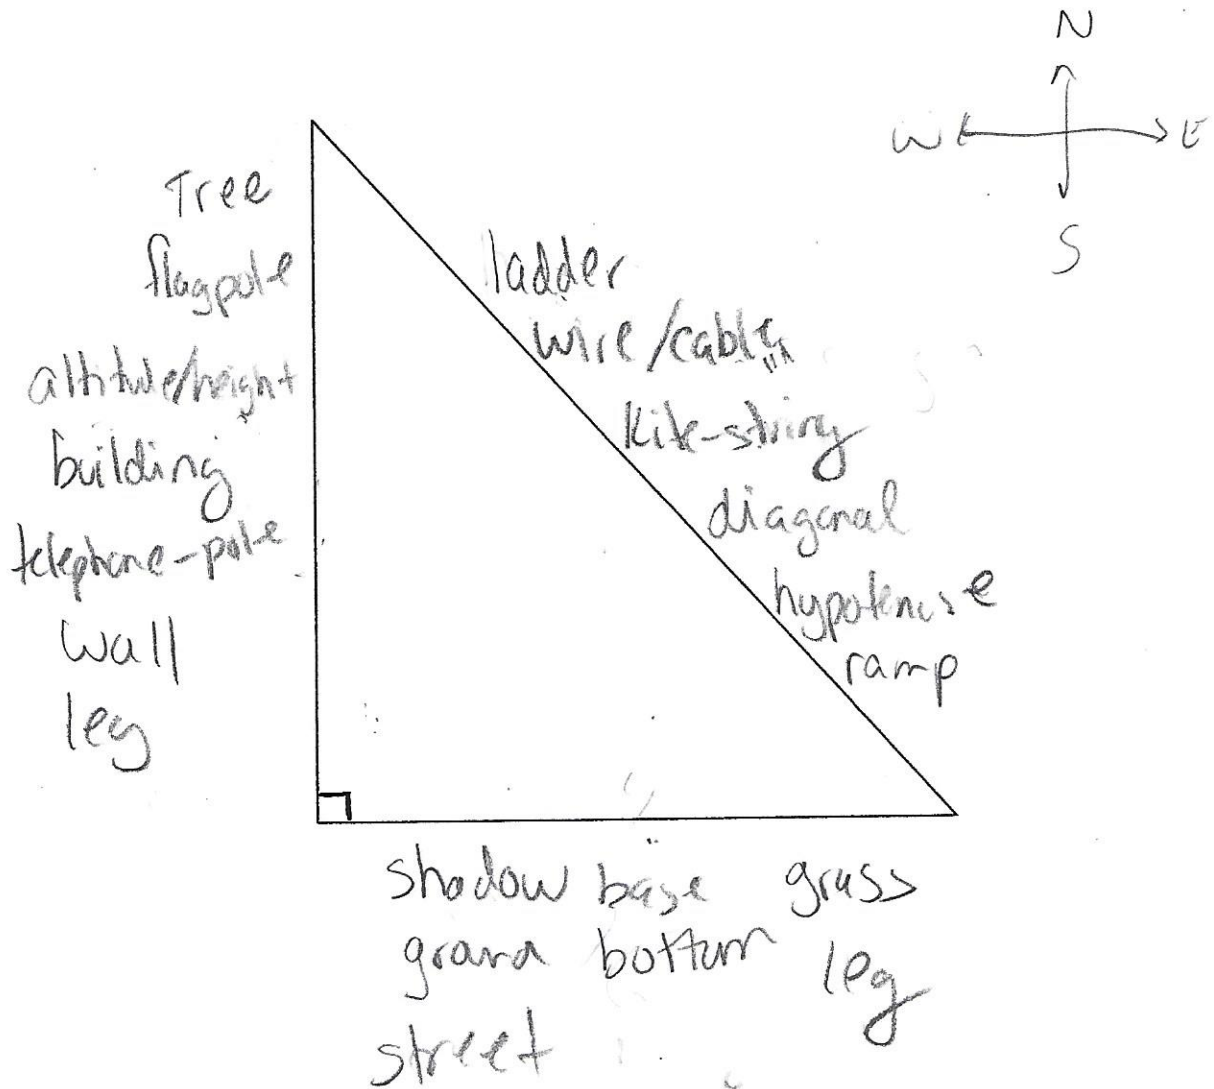 N
W E
S
Tree
flagpole
altitude/height
building
telephone-pole
wall
leg
ladder
wire/cable
kite-string
diagonal
hypotenuse
ramp
shadow base grass
ground bottom leg
street